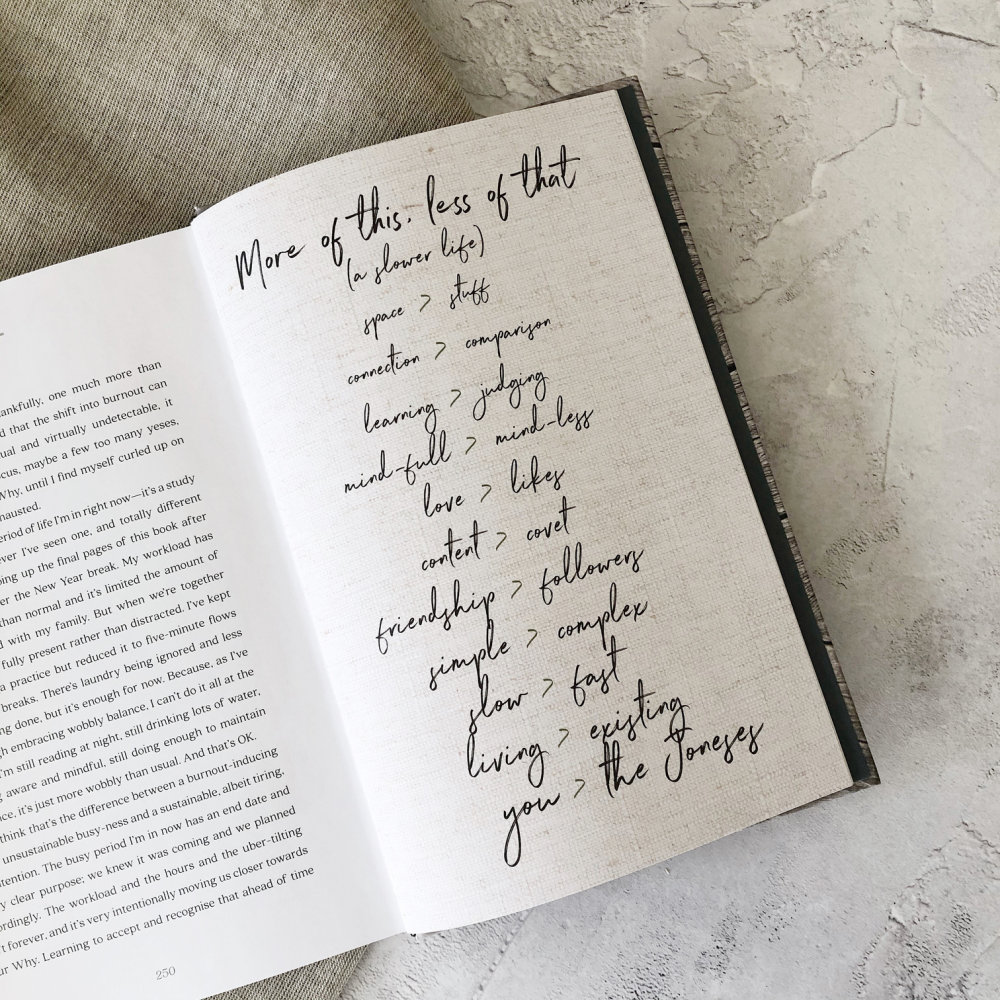 ankfully, one much more than
d that the shift into burnout can
ual and virtually undetectable, it
cus, maybe a few too many yeses,
Why, until I find myself curled up on
hausted.
eriod of life I'm in right now—it's a study
ever I've seen one, and totally different
ping up the final pages of this book after
er the New Year break. My workload has
than normal and it's limited the amount of
d with my family. But when we're together
fully present rather than distracted. I've kept
a practice but reduced it to five-minute flows
breaks. There's laundry being ignored and less
ng done, but it's enough for now. Because, as I've
gh embracing wobbly balance, I can't do it all at the
I'm still reading at night, still drinking lots of water,
g aware and mindful, still doing enough to maintain
nce, it's just more wobbly than usual. And that's OK.
think that's the difference between a burnout-inducing
unsustainable busy-ness and a sustainable, albeit tiring,
ntention. The busy period I'm in now has an end date and
y clear purpose; we knew it was coming and we planned
ordingly. The workload and the hours and the uber-tilting
't forever, and it's very intentionally moving us closer towards
ur Why. Learning to accept and recognise that ahead of time
250
More of this, less of that
(a slower life)
space > stuff
connection > comparison
learning > judging
mind-full > mind-less
love > likes
content > covet
friendship > followers
simple > complex
slow > fast
living > existing
you > the Joneses